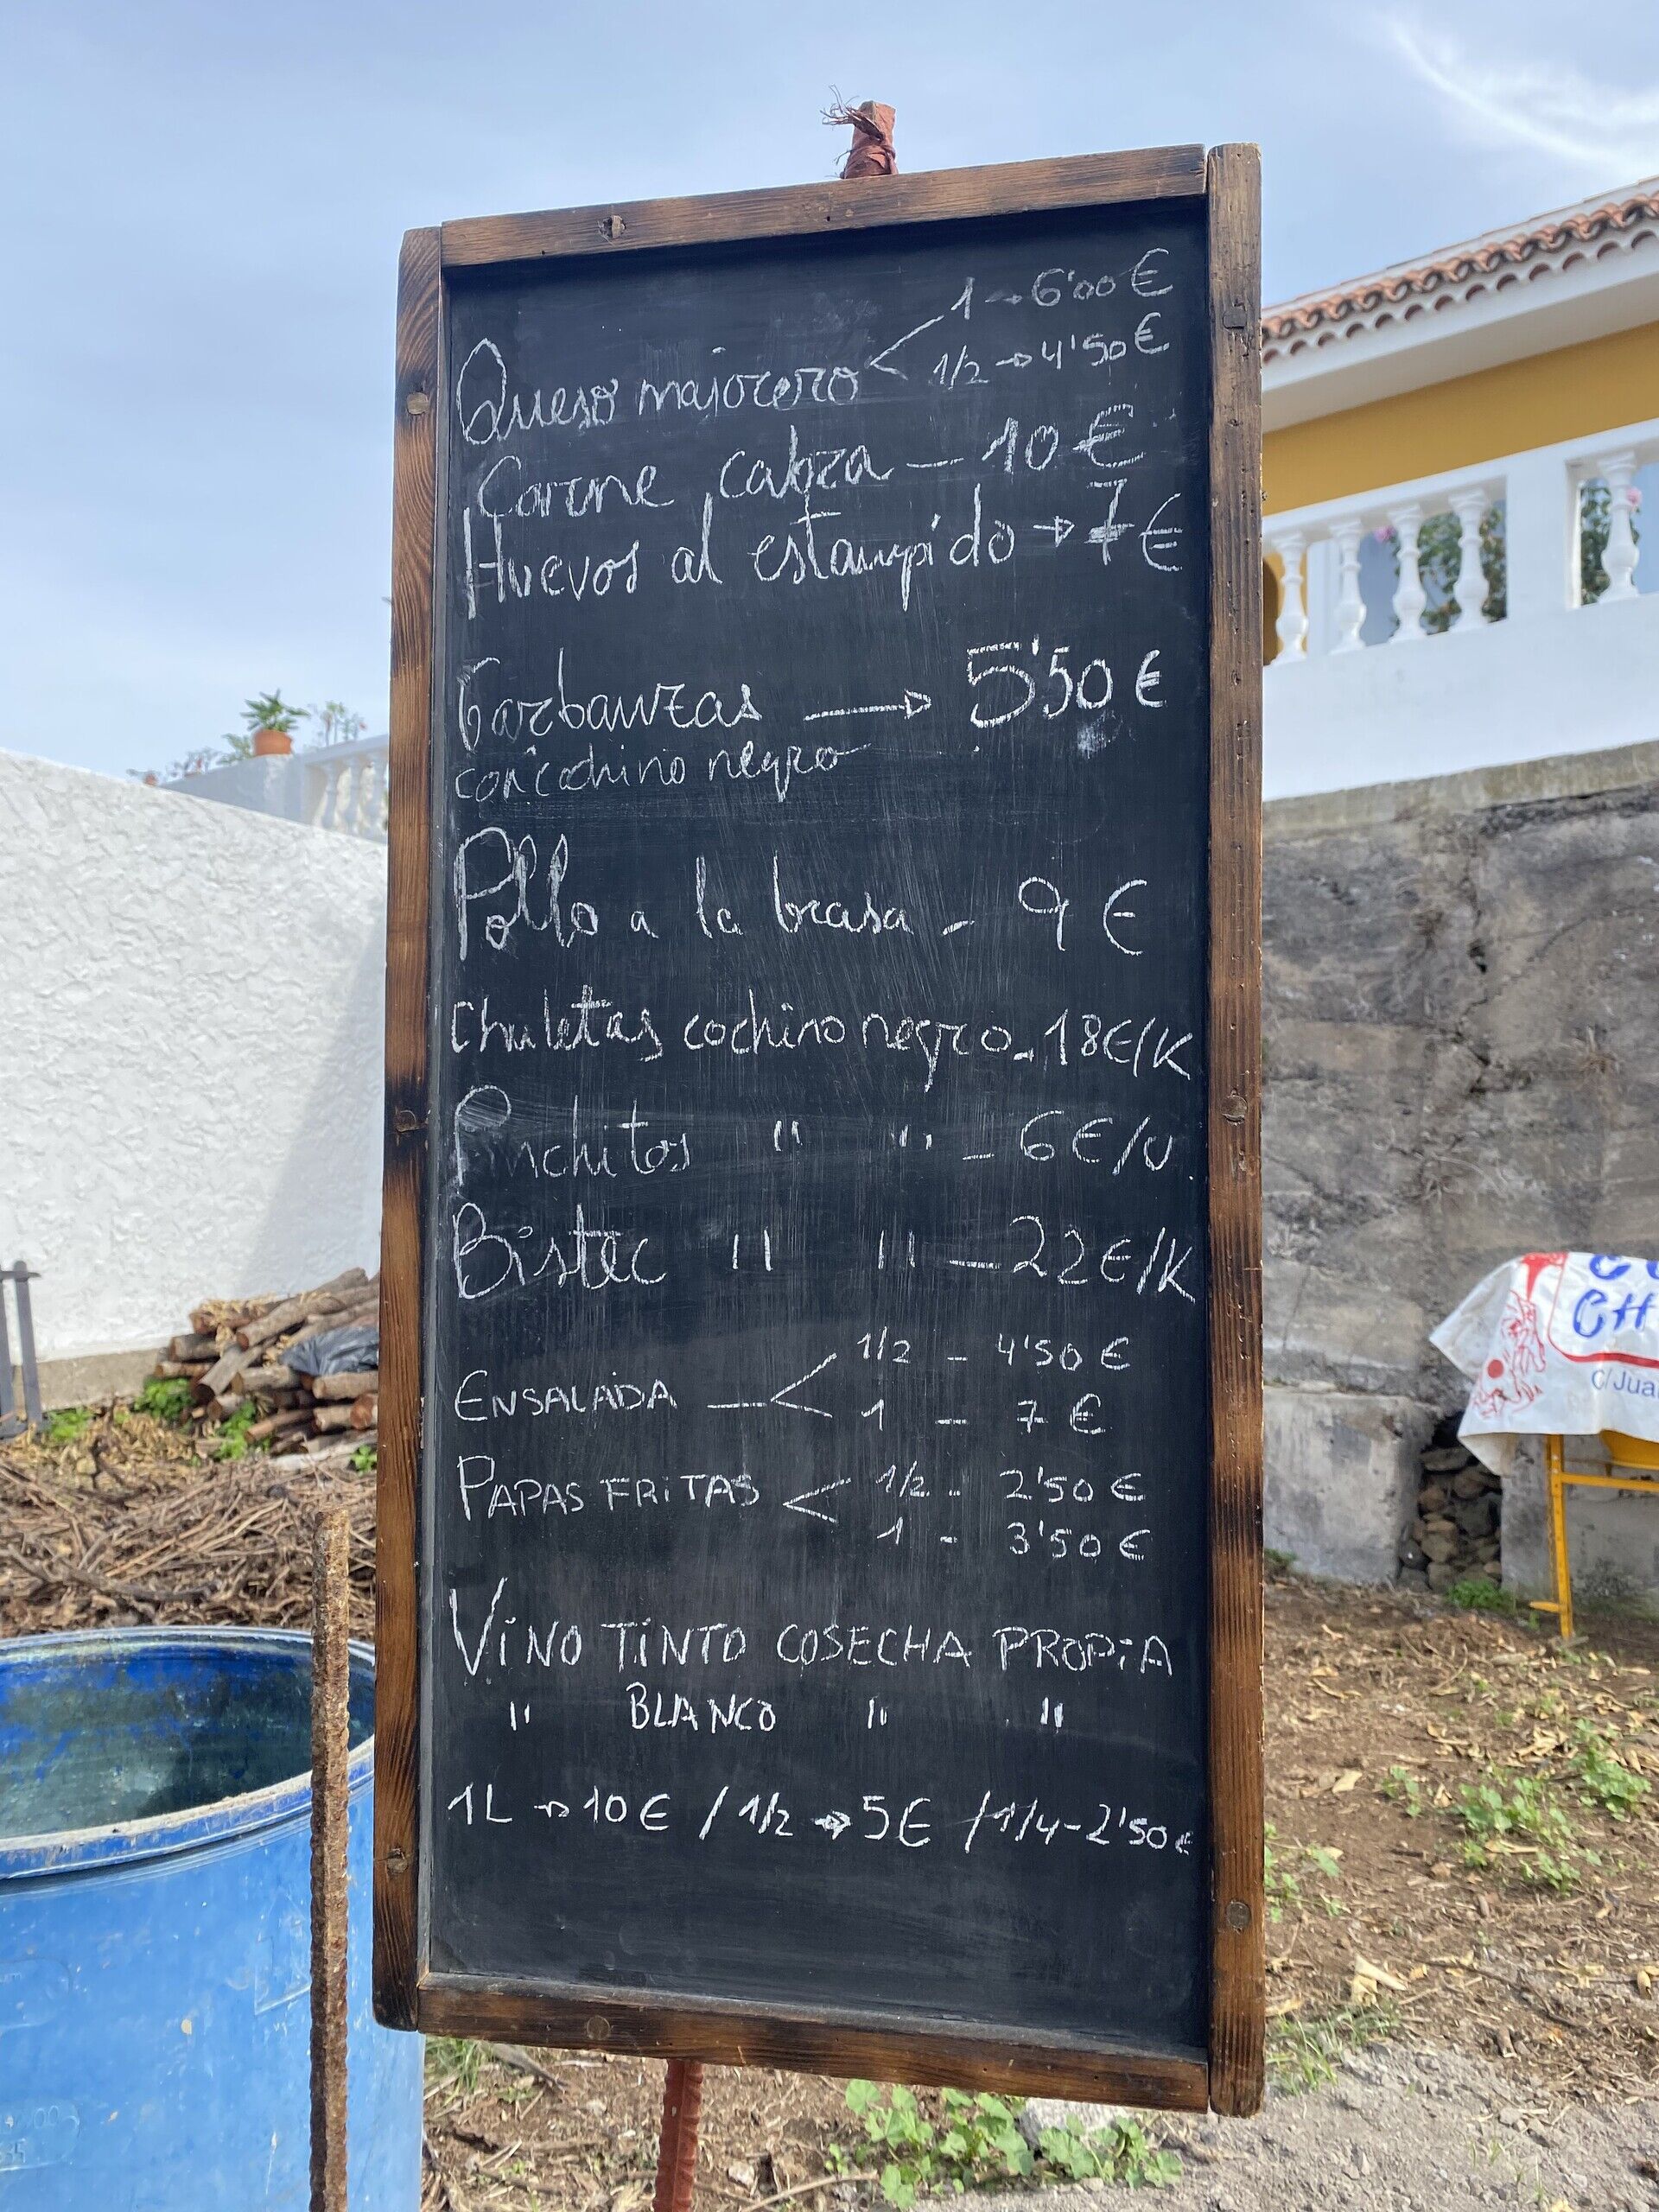 1 → 6'00 €
Queso majorero < 1/2 → 4'50 €
Carne cabra — 10 €
Huevos al estampido → 7 €
Garbanzas → 5'50 €
con cochino negro
Pollo a la brasa - 9 €
Chuletas cochino negro - 18€/K
Pinchitos " " - 6€/U.
Bistec " " - 22€/K
1/2 - 4'50 €
ENSALADA —<
1 - 7 €
PAPAS FRITAS < 1/2 - 2'50 €
1 - 3'50 €
VINO TINTO COSECHA PROPIA
" BLANCO " "
1L → 10€ / 1/2 → 5€ / 1/4 - 2'50 €
C/ Jua